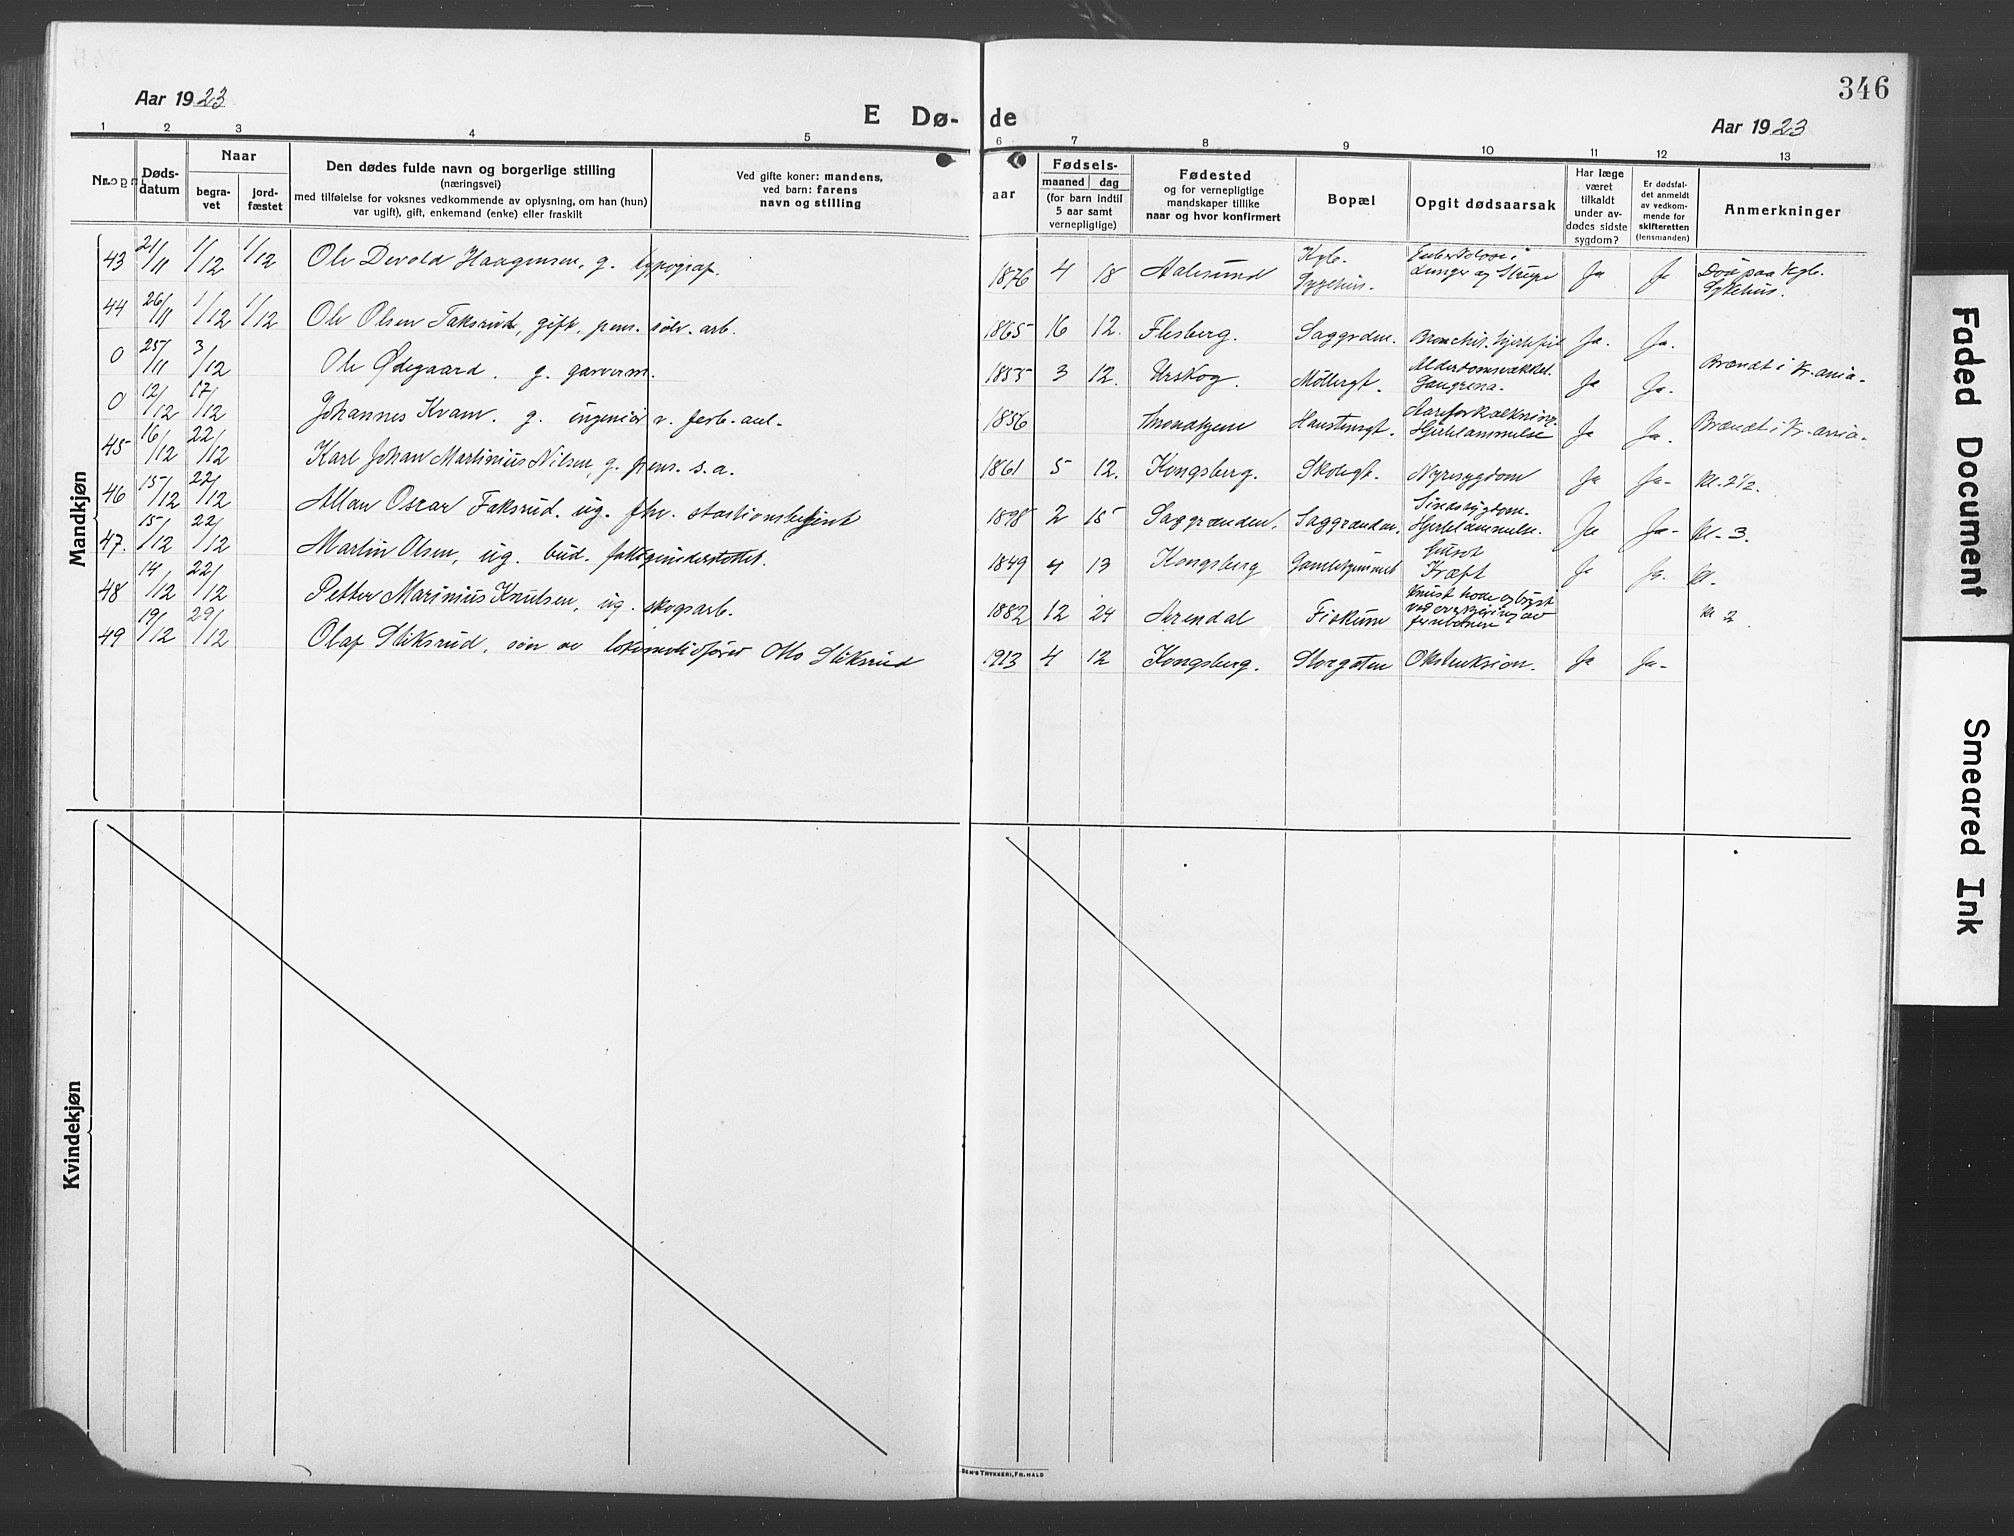 346
Aar 1923
E Dø- de
Aar 1923
1 2 3 4 5 6 7 8 9 10 11 12 13
Nr. Døds-datum Naar begra-vet jord-fæstet
Den dødes fulde navn og borgerlige stilling
(næringsvei)
med tilføielse for voksnes vedkommende av oplysning, om han (hun)
var ugift), gift, enkemand (enke) eller fraskilt
Ved gifte koner: mandens,
ved barn: farens
navn og stilling
aar
Fødsels-
maaned dag
(for barn indtil
5 aar samt
vernepligtige)
Fødested
og for vernepligtige
mandskaper tillike
naar og hvor konfirmert
Bopæl
Opgit dødsaarsak
Har læge
været
tilkaldt
under av-
dødes sidste
sygdom?
Er dødsfal-
det anmeldt
av vedkom-
mende for
skifteretten
(lensmanden)
Anmerkninger
Mandkjøn
43 21/11 1/12 1/12 Ole Devold Haagensen, g. typograf. 1876 4 18 Aalesund Kgb. Sygehus. Tuberkulose i Lunger og Strupe Ja Ja Død paa Kgb. Sykehus.
44 26/11 1/12 1/12 Ole Olsen Taksrud, gift. pens. sølv. arb. 1865 16 12. Flesberg. Saggrden. Bronchit. hjertefeil Ja. Ja.
0 25/11 3/12 Ole Ødegaard. g. garverm. 1855 3 12. Urskog. Møllergt. Alderdomsvækkel. Gangrena. Ja Ja. Brændt i Kr.ania.
0 12/12 17/12 Johannes Kvam. g. ingeniør v. forb. anl. 1856 Throndhjem Haustensgt. Aareforkalkning. Hjertelammelse Ja Ja. Brændt i Kr.ania.
45 16/12 22/12 Karl Johan Martinius Nilsen, g. pens. s.a. 1861 5 12. Kongsberg. Skolegt. Nyresygdom Ja Ja. Kl. 2½.
46 15/12 22/12 Allan Oscar Faksrud. ug. fhv. stationsbetjent 1898 2 15 Saggrænden. Saggrænden. Sindssygdom. Hjertelammelse. Ja Ja. Kl. 3.
47. 15/12 22/12 Martin Olsen, ug. bud. fattigunderstøttet. 1849 4 13 Kongsberg Gamlehjemmet Kræft Ja Ja. Kl.
48 14/12 22/12 Petter Marinius Knutsen, ug. skogsarb. 1882 12 24 Arendal Fiskum Knust hode og bryst ved overkjøring av jernbanen Kl. 2
49 19/12 29/12 Olaf Stiksrud, søn av lokomotivfører Otto Stiksrud 1913 4 12 Kongsberg. Storgaten Obstruksion. Ja Ja.
Kvindekjøn
BEN'S TRYKKERI, FR. HALD
Faded Document
Smeared Ink